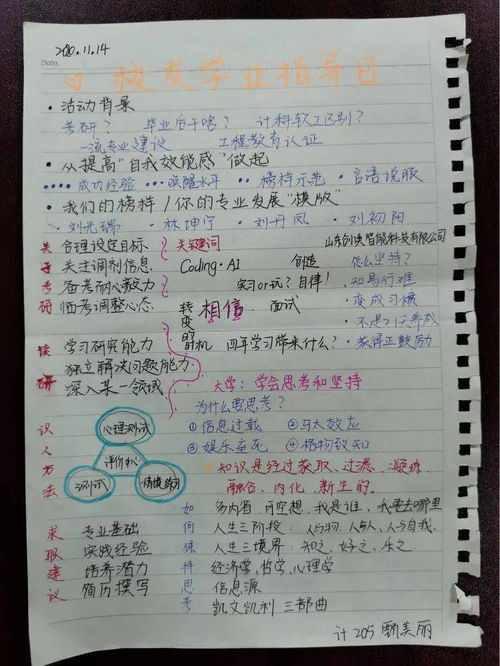 2020.11.14
Date
校友学业指导日
• 活动背景
考研？ 毕业后干啥？ 计科软工区别？
一流专业建设 工程教育认证
• 从提高"自我效能感"做起
成功经验 唤醒水平 榜样示范 言语说服
• 我们的榜样/你的专业发展"模版"
刘光瑞 林坤宁 刘丹凤 刘初阳
关于考研
合理设定目标
关注调剂信息
备考耐心毅力
临考调整心态
关键词
山东创牍智能科技有限公司
Coding·AI 创造
实习or玩？自律！
转变的时机
相信 面试
四年学习带来什么？
怎么坚持？
• 知易行难
• 变成习惯
• 不是21天养成
• 获得正鼓励
读研
学习研究能力
独立解决问题能力
深入某一领域
大学：学会思考和坚持
为什么要思考？
①信息过载 ②马太效应
③娱乐至死 ④格物致知
• 知识是经过获取、过滤、凝练、
融合、内化、新生的。
识人方法
心理测试
评价中心
笔试
情境模拟
求取建议
专业基础
实践经验
培养潜力
简历撰写
如何保持思考
多内省，可空想，我是谁，我要去哪里
人生三阶段：人与物、人与人、人与自我.
人生三境界：知之、好之、乐之.
经济学、哲学、心理学
信息源
凯文凯利 三部曲
计205 甄美丽